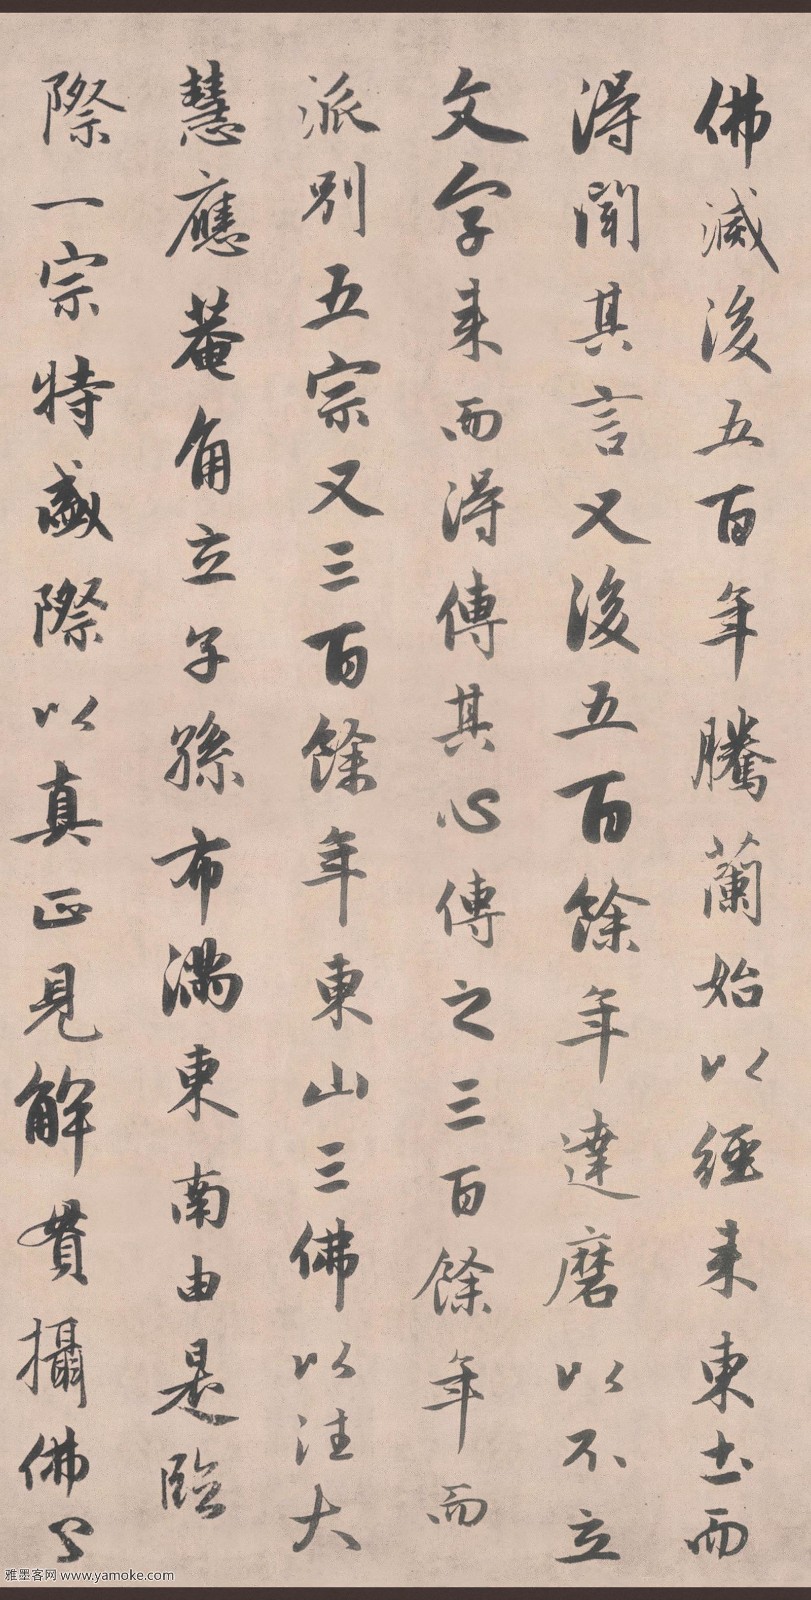 佛滅後五百年騰蘭始以經来東土而
得聞其言又後五百餘年達磨以不立
文字来而得傳其心傳之三百餘年而
派別五宗又三百餘年東山三佛以注大
慧應菴角立子孫布滿東南由是臨
際一宗特盛際以真正見解貫攝佛
雅墨客网 www.yamoke.com